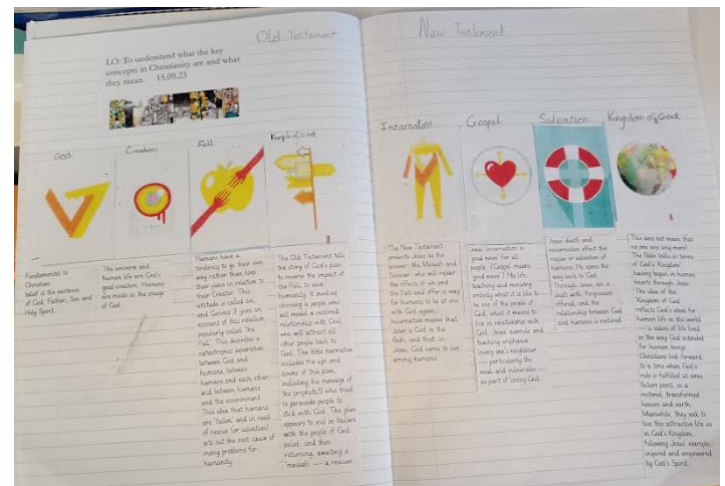 Old Testament
LO: To understand what the key
concepts in Christianity are and what
they mean. 15.09.23
God
Creation
Fall
People of God
Fundamental to
Christian
belief is the existence
of God, Father, Son and
Holy Spirit.
The universe and
human life are God's
good creation. Humans
are made in the image
of God.
Humans have a
tendency to go their own
way rather than keep
their place in relation to
their Creator. This
attitude is called sin,
and Genesis 3 gives an
account of this rebellion,
popularly called 'the
Fall'. This describes a
catastrophic separation
between God and
humans, between
humans and each other,
and between humans
and the environment.
This idea that humans
are 'fallen' and in need
of rescue (or salvation)
sets out the root cause of
many problems for
humanity.
The Old Testament tells
the story of God's plan
to reverse the impact of
the Fall, to save
humanity. It involves
choosing a people who
will model a restored
relationship with God,
who will attract all
other people back to
God. The Bible narrative
includes the ups and
downs of this plan,
including the message of
the prophets, who tried
to persuade people to
stick with God. The plan
appears to end in failure
with the people of God
exiled, and then
returning, awaiting a
'messiah' — a rescuer
New Testament
Incarnation
Gospel
Salvation
Kingdom of God
The New Testament
presents Jesus as the
answer: the Messiah and
Saviour, who will repair
the effects of sin and
the Fall and offer a way
for humans to be at one
with God again.
Incarnation means that
Jesus is God in the
flesh, and that, in
Jesus, God came to live
among humans.
Jesus' incarnation is
good news for all
people. ('Gospel' means
'good news'.) His life,
teaching and ministry
embody what it is like to
be one of the people of
God, what it means to
live in relationship with
God. Jesus' example and
teaching emphasise
loving one's neighbour
— particularly the
weak and vulnerable —
as part of loving God.
Jesus' death and
resurrection effect the
rescue or salvation of
humans. He opens the
way back to God.
Through Jesus, sin is
dealt with, forgiveness
offered, and the
relationship between God
and humans is restored.
This does not mean that
no one sins any more!
The Bible talks in terms
of God's 'Kingdom'
having begun in human
hearts through Jesus.
The idea of the
'Kingdom of God'
reflects God's ideal for
human life in the world
— a vision of life lived
in the way God intended
for human beings.
Christians look forward
to a time when God's
rule is fulfilled at some
future point, in a
restored, transformed
heaven and earth.
Meanwhile, they seek to
live this attractive life as
in God's Kingdom,
following Jesus' example,
inspired and empowered
by God's Spirit.